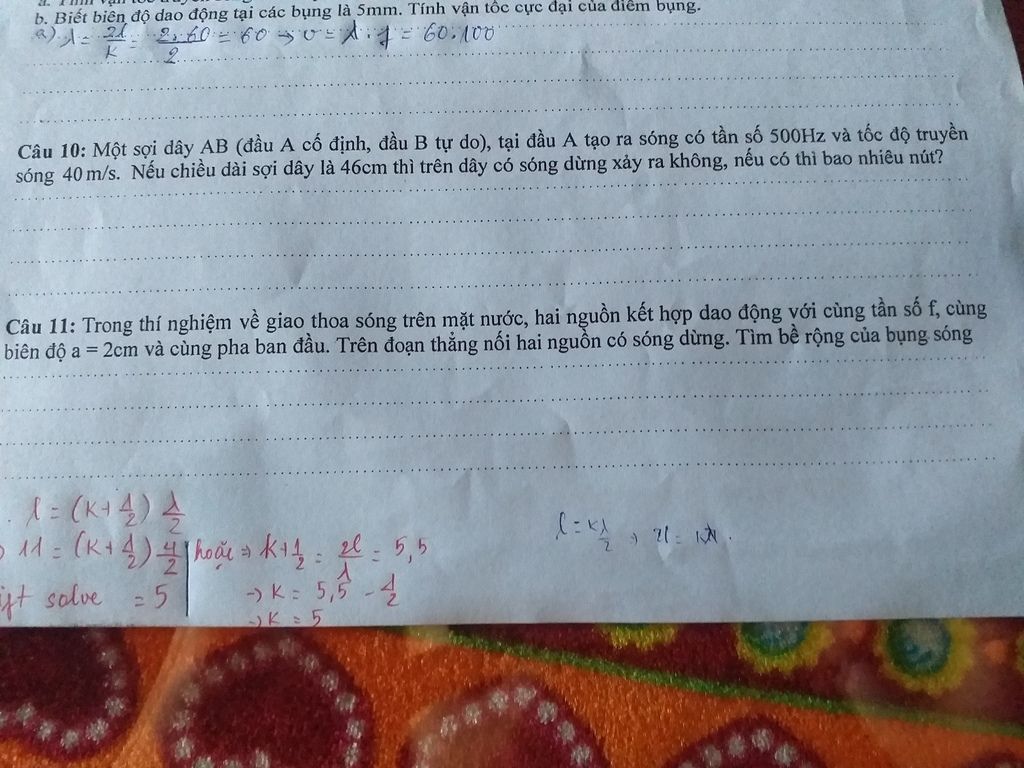 b. Biết biên độ dao động tại các bụng là 5mm. Tính vận tốc cực đại của điểm bụng.
a) λ = 2l/k = 2.60/2 = 60 → v = λ.f = 60.100
Câu 10: Một sợi dây AB (đầu A cố định, đầu B tự do), tại đầu A tạo ra sóng có tần số 500Hz và tốc độ truyền
sóng 40 m/s. Nếu chiều dài sợi dây là 46cm thì trên dây có sóng dừng xảy ra không, nếu có thì bao nhiêu nút?
Câu 11: Trong thí nghiệm về giao thoa sóng trên mặt nước, hai nguồn kết hợp dao động với cùng tần số f, cùng
biên độ a = 2cm và cùng pha ban đầu. Trên đoạn thẳng nối hai nguồn có sóng dừng. Tìm bề rộng của bụng sóng
l = (k+1/2) λ/2
11 = (k+1/2) 4/2 hoặc ⇒ k+1/2 = 2l/λ = 5,5
solve = 5 → k = 5,5 - 1/2
→ k = 5
l = kλ/2 → 2l = kλ.